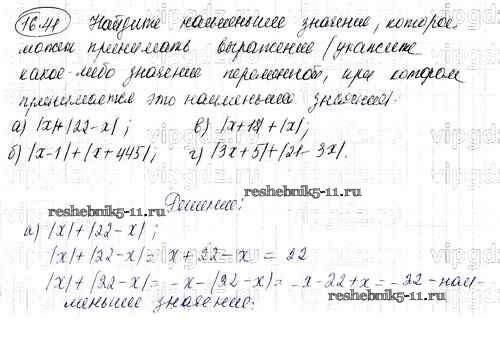 16.41 Найдите наименьшее значение, которое
может принимать выражение (укажите
какое-либо значение переменной, при котором
принимается это наименьшее значение).
а) |x|+|22-x|; в) |x+18|+|x|;
б) |x-1|+|x+445|; г) |3x+5|+|21-3x|.
Решение:
reshebnik5-11.ru
reshebnik5-11.ru
а) |x|+|22-x|;
|x|+|22-x|= x+22-x = 22
|x|+|22-x|= -x-(22-x)= -x-22+x=-22-наи-
reshebnik5-11.ru
меньшее значение.